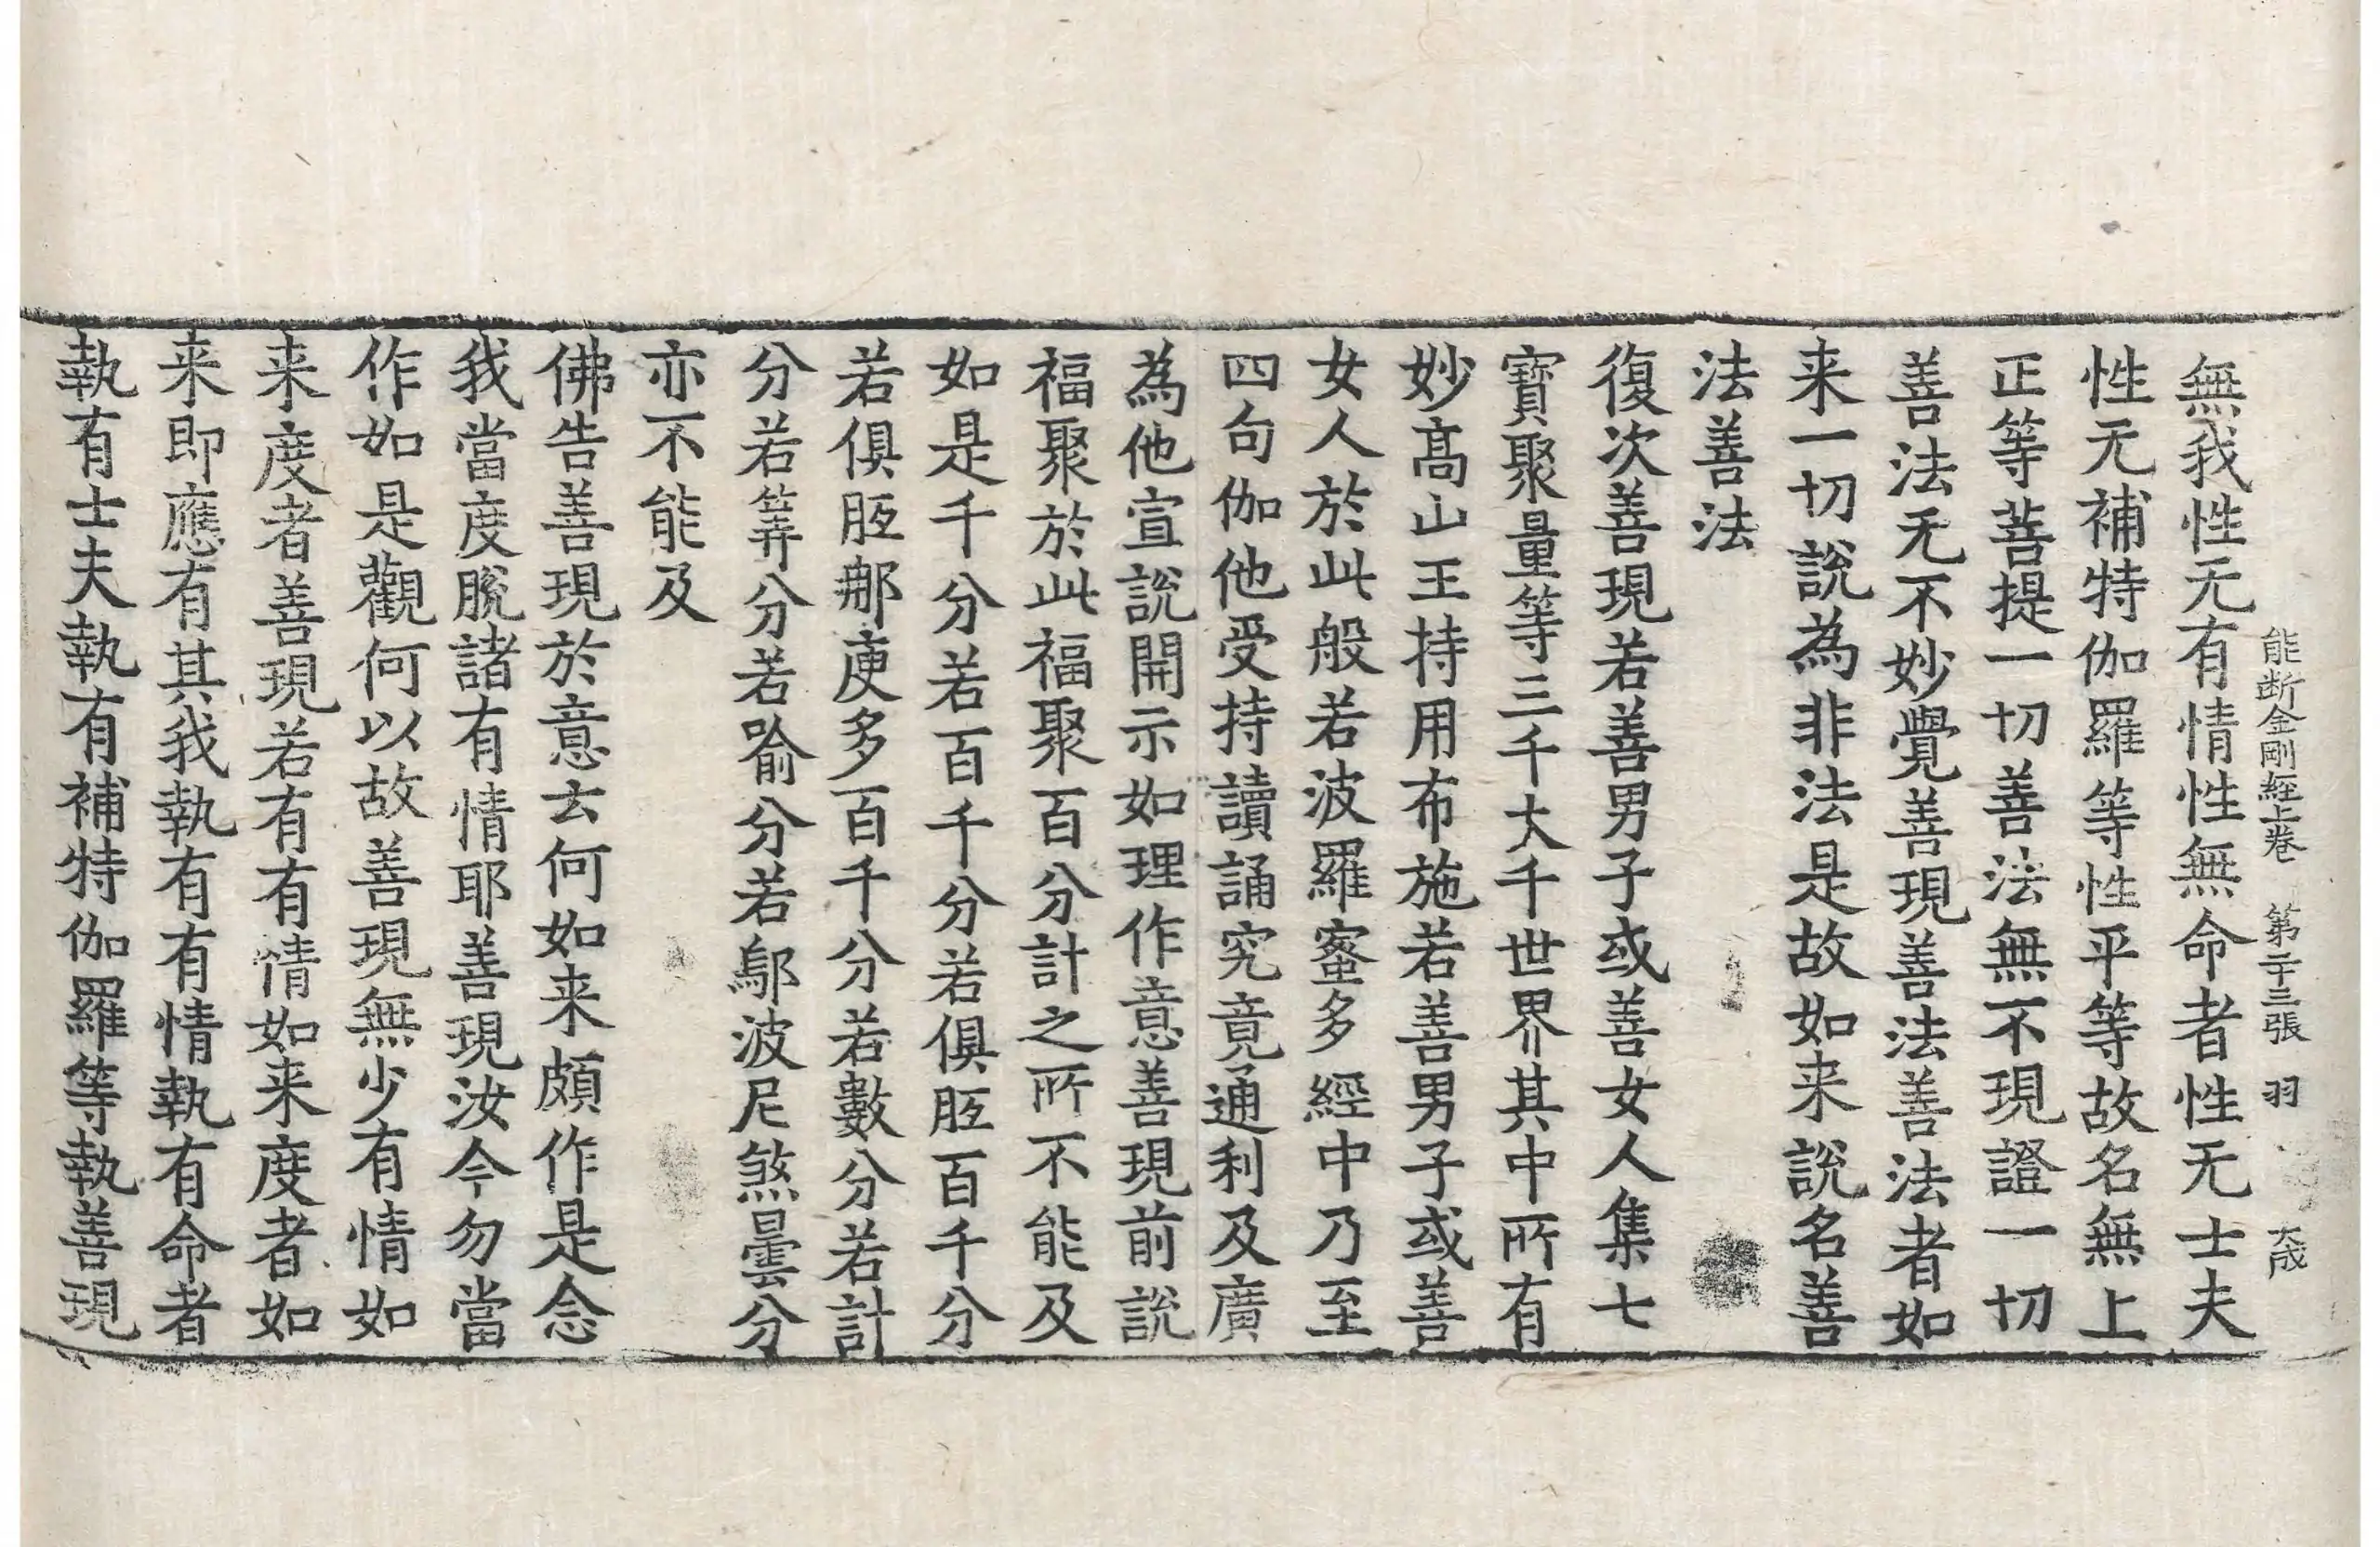 能断金剛經上卷 第二十三張 羽 大成
無我性无有情性無命者性无士夫
性无補特伽羅等性平等故名無上
正等菩提一切善法無不現證一切
善法无不妙覺善現善法善法者如
来一切說為非法是故如来說名善
法善法
復次善現若善男子或善女人集七
寶聚量等三千大千世界其中所有
妙髙山王持用布施若善男子或善
女人於此般若波羅蜜多經中乃至
四句伽他受持讀誦究竟通利及廣
為他宣說開示如理作意善現前說
福聚於此福聚百分計之所不能及
如是千分若百千分若俱胝百千分
若俱胝那庾多百千分若數分若計
分若筭分若喻分若鄔波尼煞曇分
亦不能及
佛告善現於意云何如来頗作是念
我當度脫諸有情耶善現汝今勿當
作如是觀何以故善現無少有情如
来度者善現若有有情如来度者如
来即應有其我執有有情執有命者
執有士夫執有補特伽羅等執善現